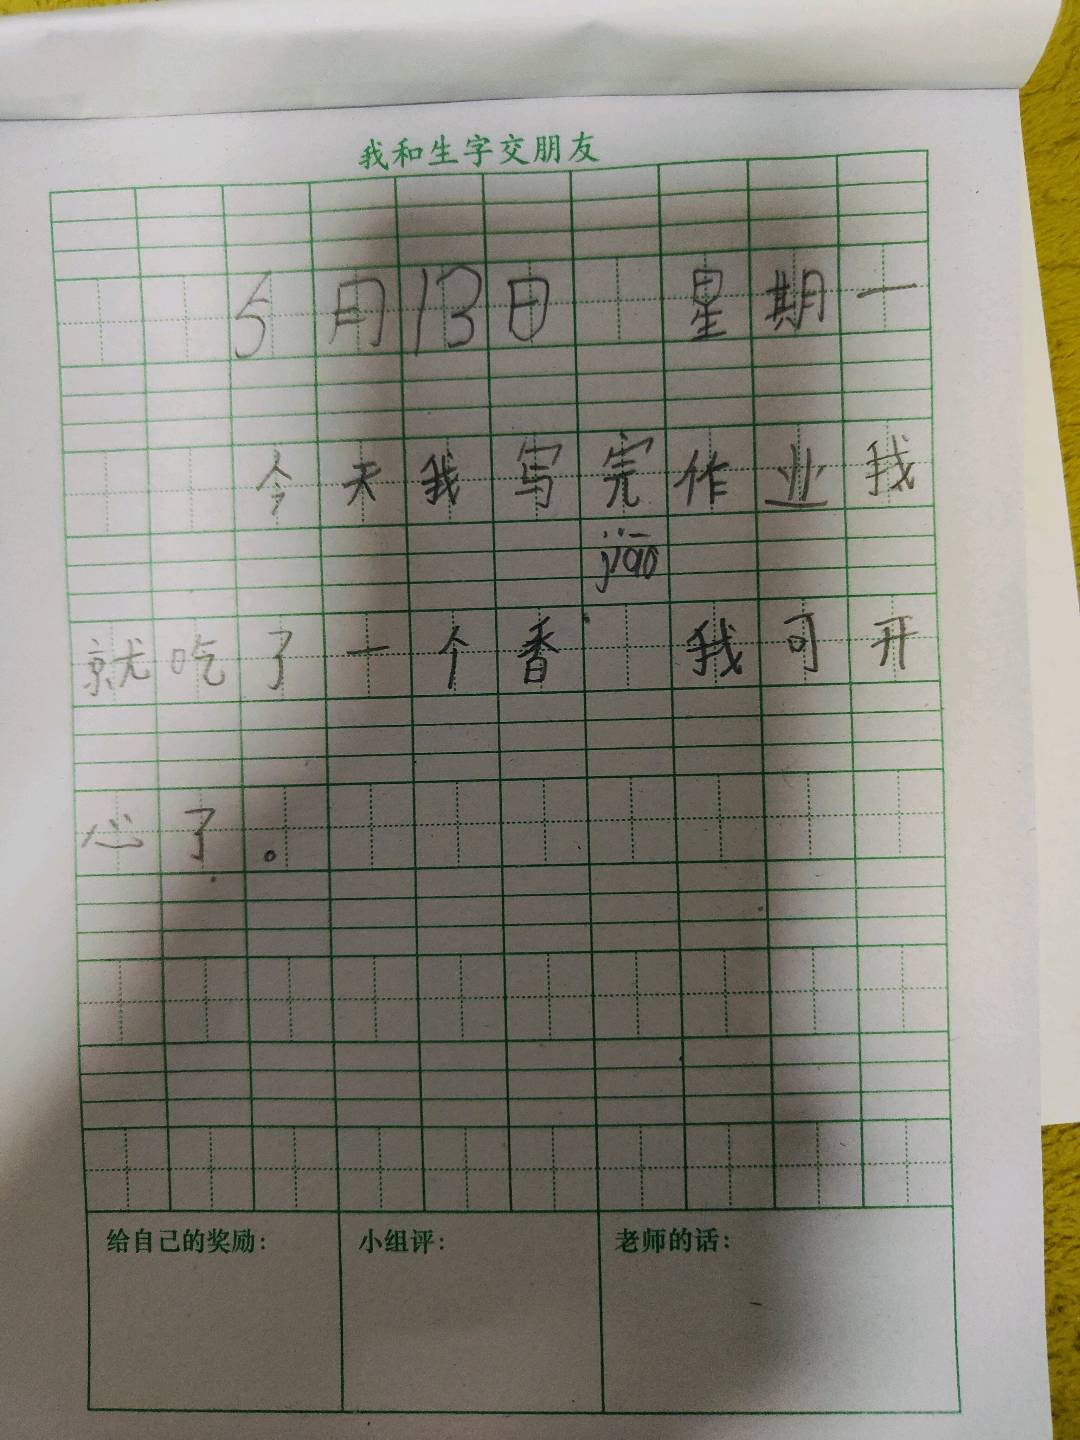 我和生字交朋友
5月13日 星期一
今天我写完作业我
jiāo
就吃了一个香 我可开
心了。
给自己的奖励： 小组评： 老师的话：